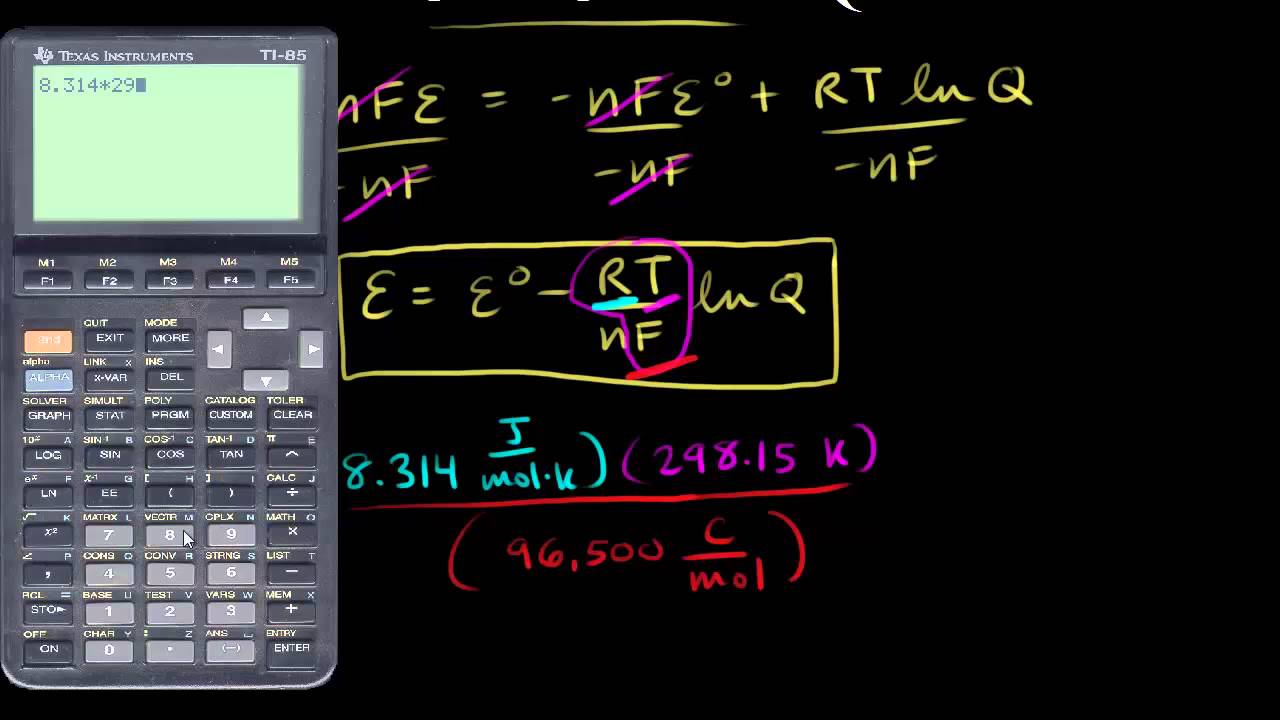 TEXAS INSTRUMENTS TI-85
8.314*29
M1 M2 M3 M4 M5
F1 F2 F3 F4 F5
QUIT MODE
2nd EXIT MORE
alpha LINK x INS
ALPHA x-VAR DEL
SOLVER SIMULT POLY CATALOG TOLER
GRAPH STAT PRGM CUSTOM CLEAR
10ˣ A SIN⁻¹ B COS⁻¹ C TAN⁻¹ D π E
LOG SIN COS TAN ^
eˣ F x⁻¹ G [ H ] I CALC J
LN EE ( ) ÷
√ K MATRX L VECTR M CPLX N MATH O
x² 7 8 9 ×
∠ P CONS Q CONV R STRNG S LIST T
, 4 5 6 −
RCL = BASE U TEST V VARS W MEM X
STO► 1 2 3 +
OFF CHAR Y : Z ANS ENTRY
ON 0 . (−) ENTER
nFε = -nFε° + RT ln Q
-nF -nF -nF
ε = ε° - RT ln Q
nF
8.314 J/mol·K) (298.15 K)
(96,500 C/mol)